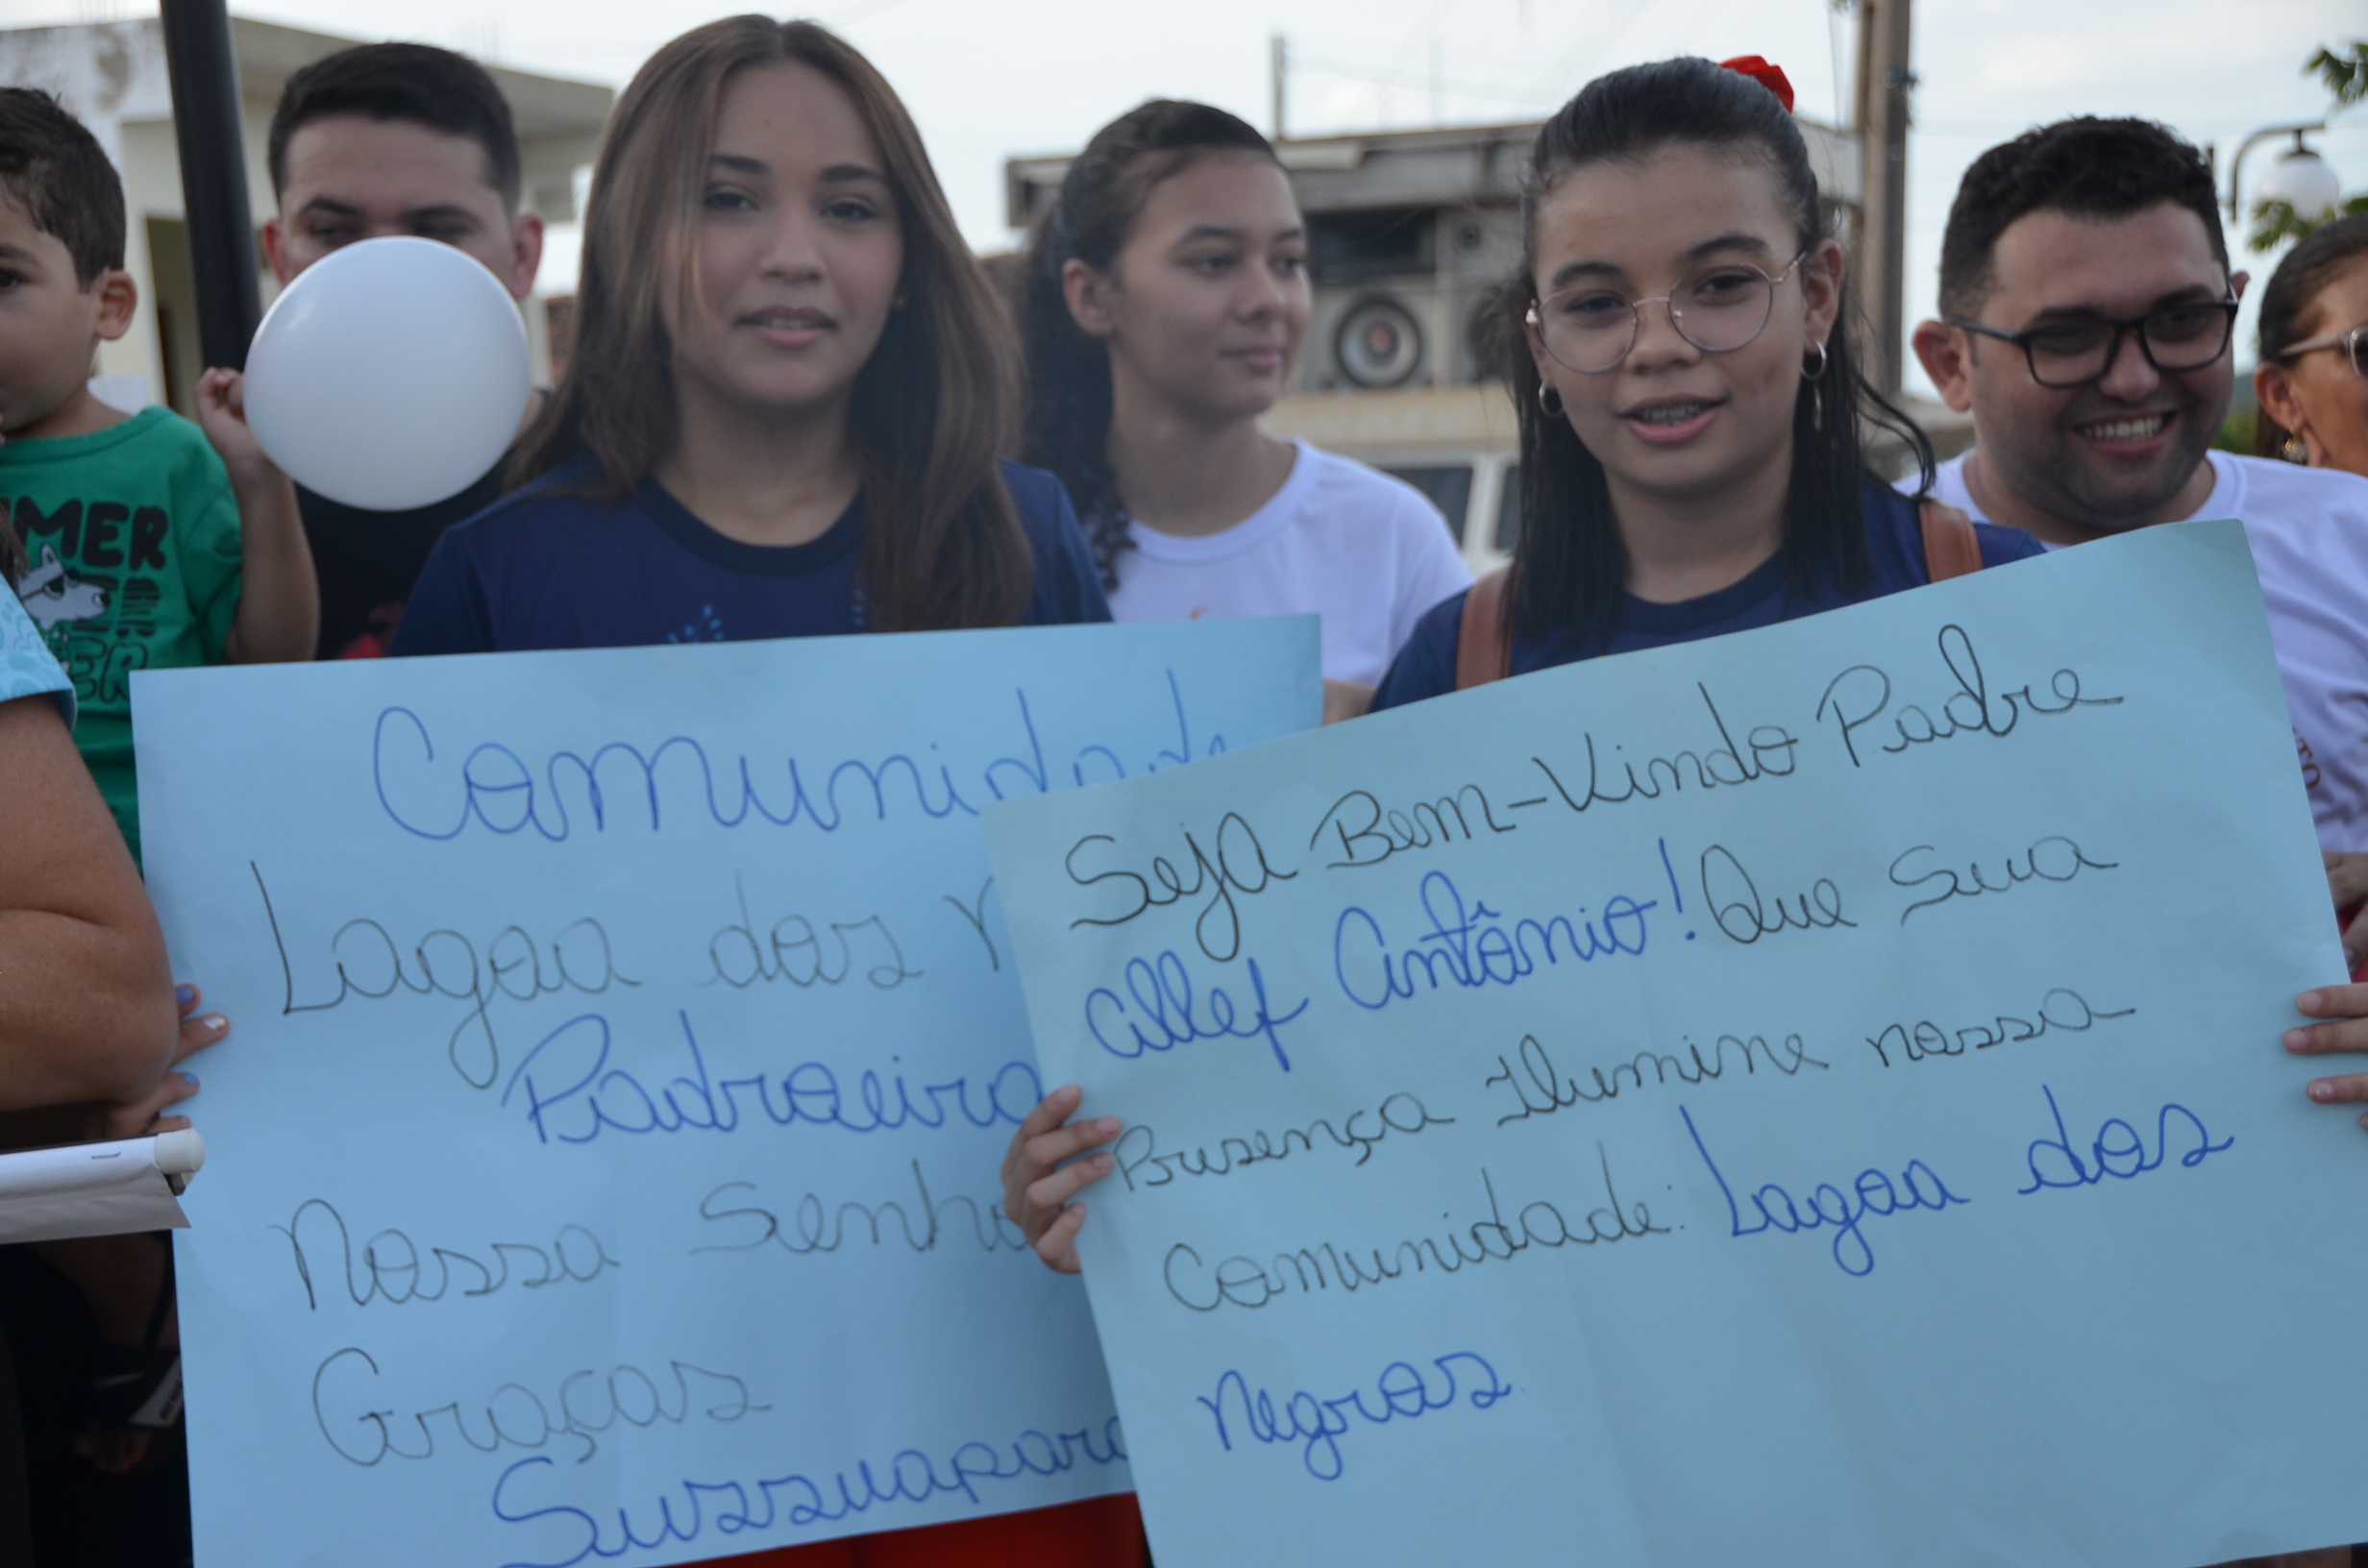 MER
Comunidade
Lagoa dos
Padroeira
Nossa Senho
Graças
Sussuapara
Seja Bem-Vindo Padre
Allef Antônio! Que Sua
Presença Ilumine nossa
Comunidade: Lagoa dos
Negros